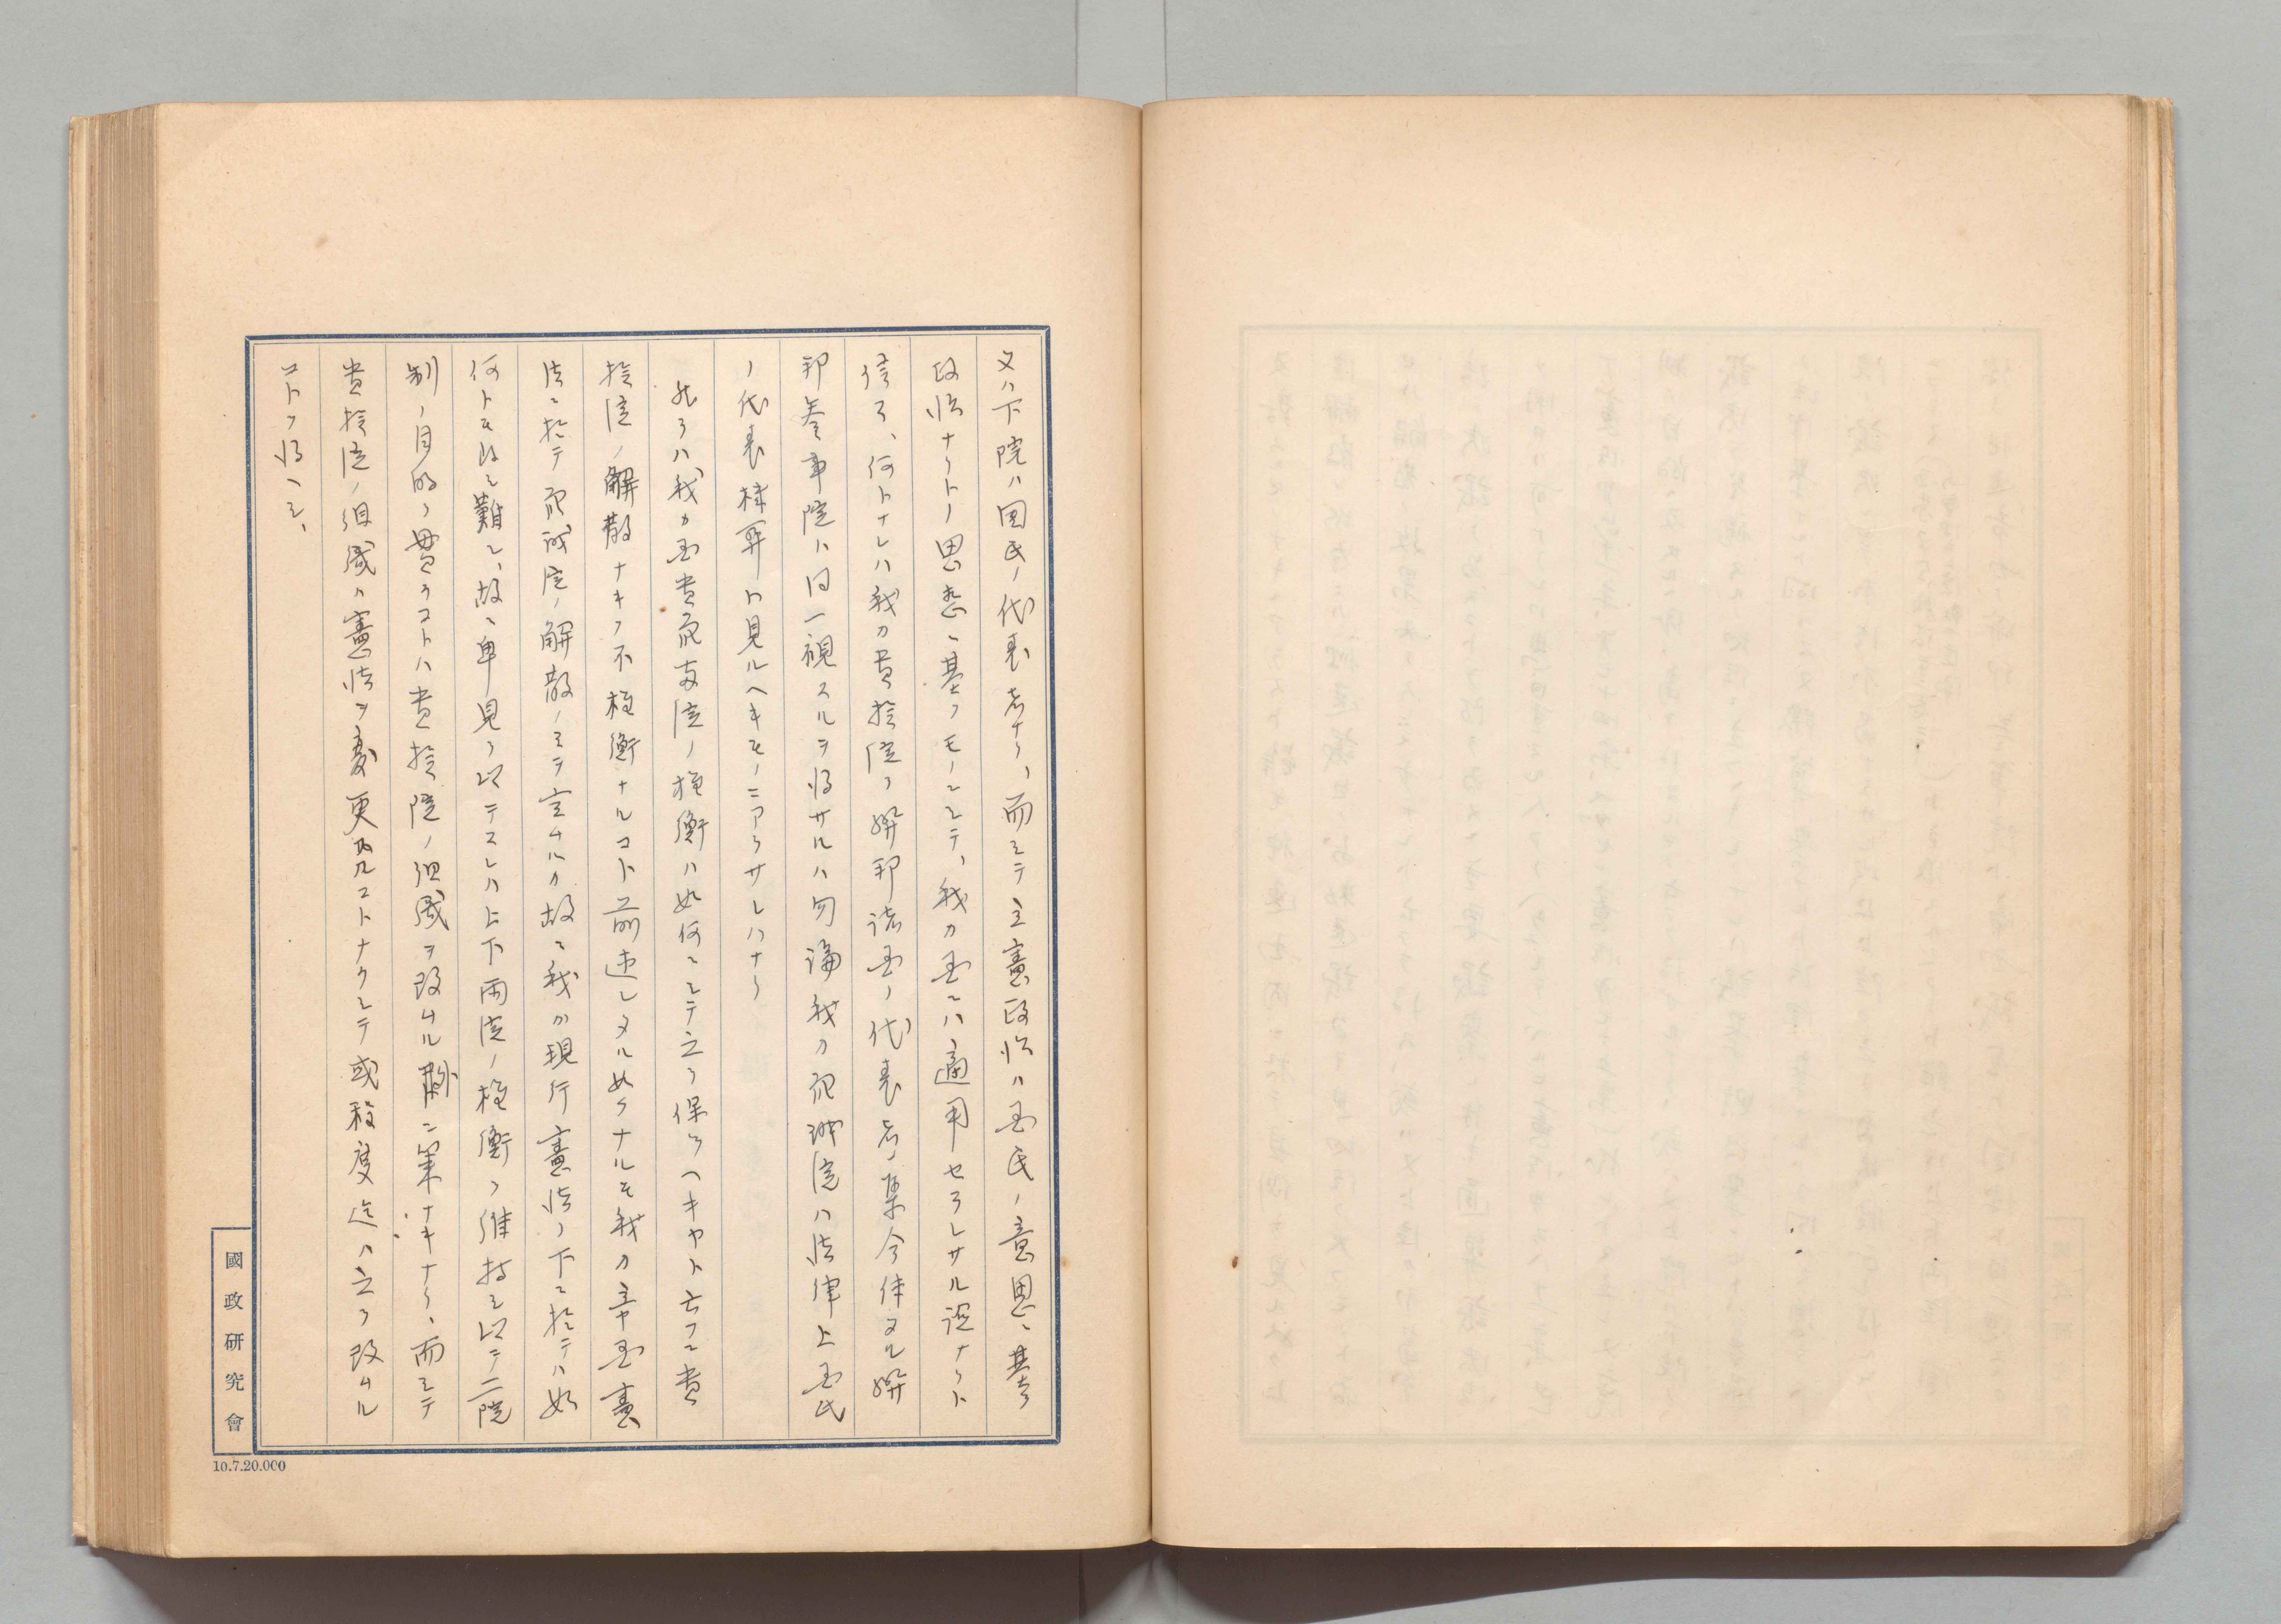 又ハ下院ハ国民ノ代表者ナリ、而シテ立憲政治ハ国民ノ意思ニ基ク
政治ナリトノ思想ニ基クモノニシテ、我カ国ニハ適用セラレサル説ナリト
信ス、何トナレハ我カ貴族院ヲ聯邦諸国ノ代表者ノ集合体タル聯
邦参事院ハ同一視スルヲ得サルハ勿論我カ衆議院ハ法律上国民
ノ代表機関ト見ルヘキモノニアラサレハナリ
然ラハ我カ国貴衆両院ノ権衡ハ如何ニシテ之ヲ保ツヘキヤト云フニ貴
族院ノ解散ナキヲ不権衡ナルコト前述シタル如クナルモ我カ帝国憲
法ニ於テ衆議院ノ解散ノミヲ定ムルカ故ニ我カ現行憲法ノ下ニ於テハ如
何トモ改メ難シ、故ニ卑見ヲ以テスレハ上下両院ノ権衡ヲ維持シ以テ二院
制ノ目的ヲ貫クコトハ貴族院ノ組織ヲ改ムルニ策ナキナリ、而シテ
貴族院ノ組織ハ憲法ヲ変更スルコトナクシテ或程度迄ハ之ヲ改ムル
コトヲ得ヘシ、
國政研究會
10.7.20.000